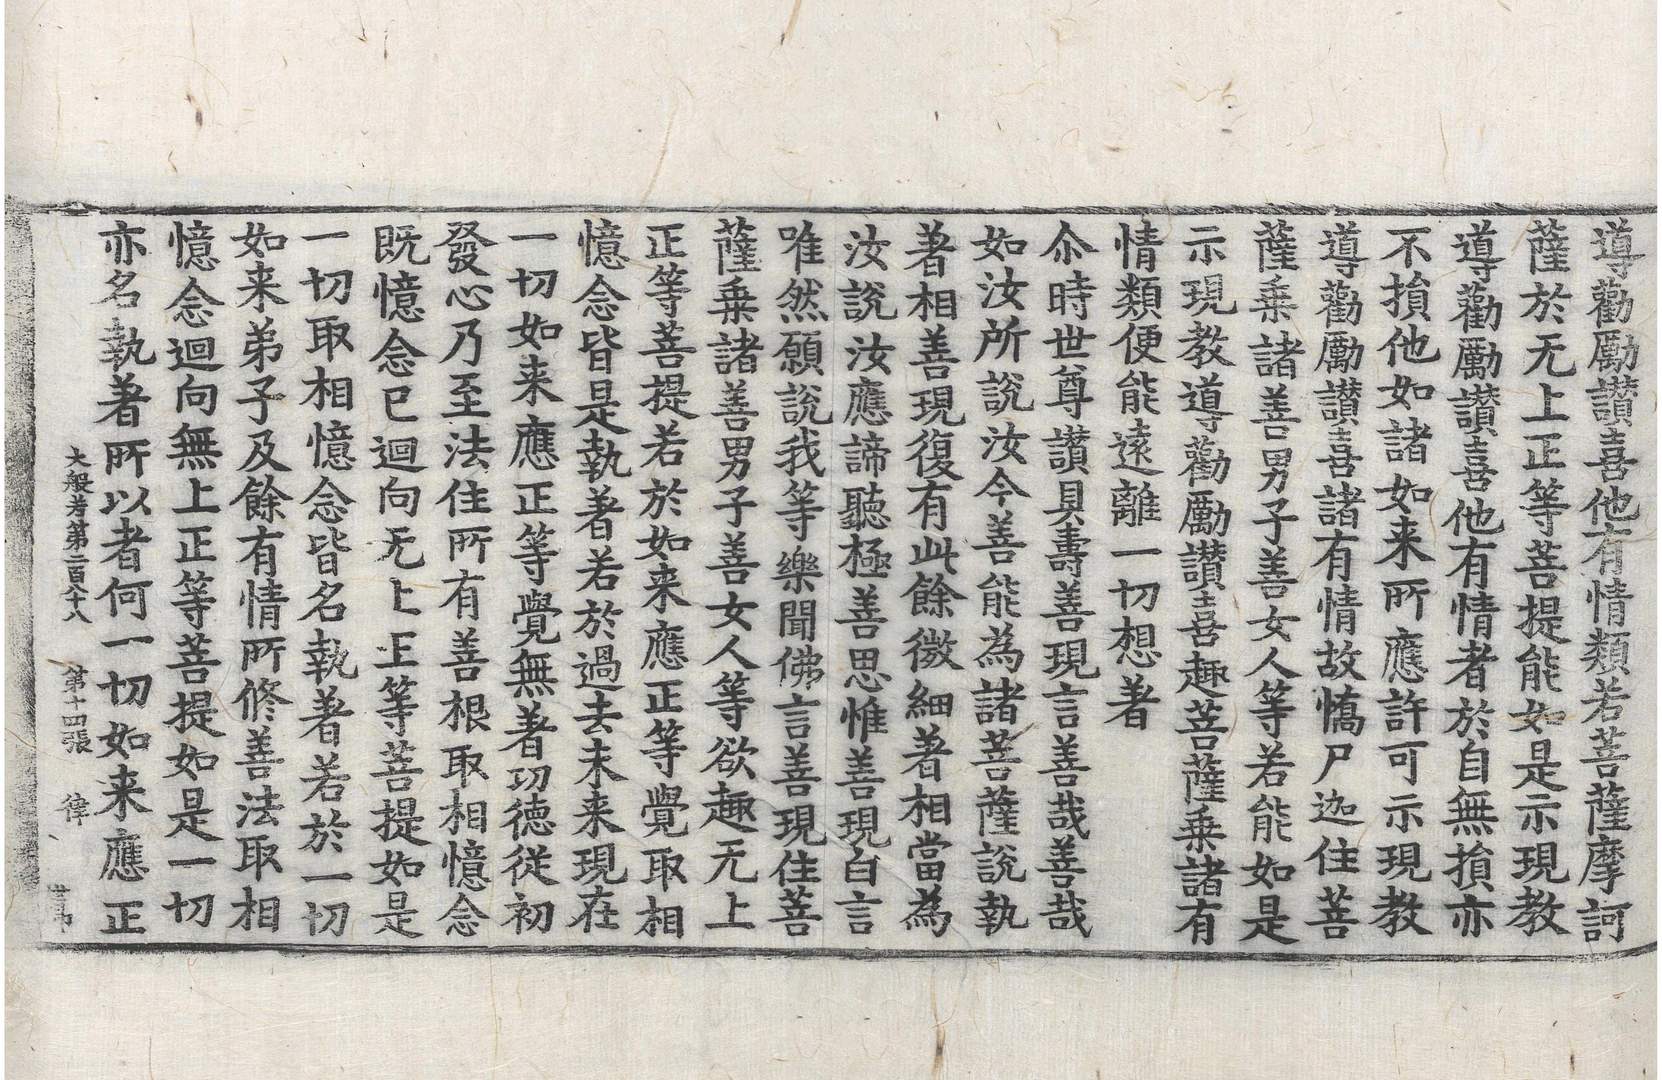 導勸勵讃喜他有情類若菩薩摩訶
薩於无上正等菩提能如是示現教
導勸勵讃喜他有情者於自無損亦
不損他如諸如来所應許可示現教
導勸勵讃喜諸有情故憍尸迦住菩
薩乗諸善男子善女人等若能如是
示現教導勸勵讃喜趣菩薩乗諸有
情類便能遠離一切想著
尒時世尊讃具壽善現言善哉善哉
如汝所說汝今善能為諸菩薩說執
著相善現復有此餘微細著相當為
汝說汝應諦聽極善思惟善現白言
唯然願說我等樂聞佛言善現住菩
薩乗諸善男子善女人等欲趣无上
正等菩提若於如来應正等覺取相
憶念皆是執著若於過去未来現在
一切如来應正等覺無著功德從初
發心乃至法住所有善根取相憶念
既憶念已迴向无上正等菩提如是
一切取相憶念皆名執著若於一切
如来弟子及餘有情所修善法取相
憶念迴向無上正等菩提如是一切
亦名執著所以者何一切如来應正
大般若第二百八十八 第十四張 律